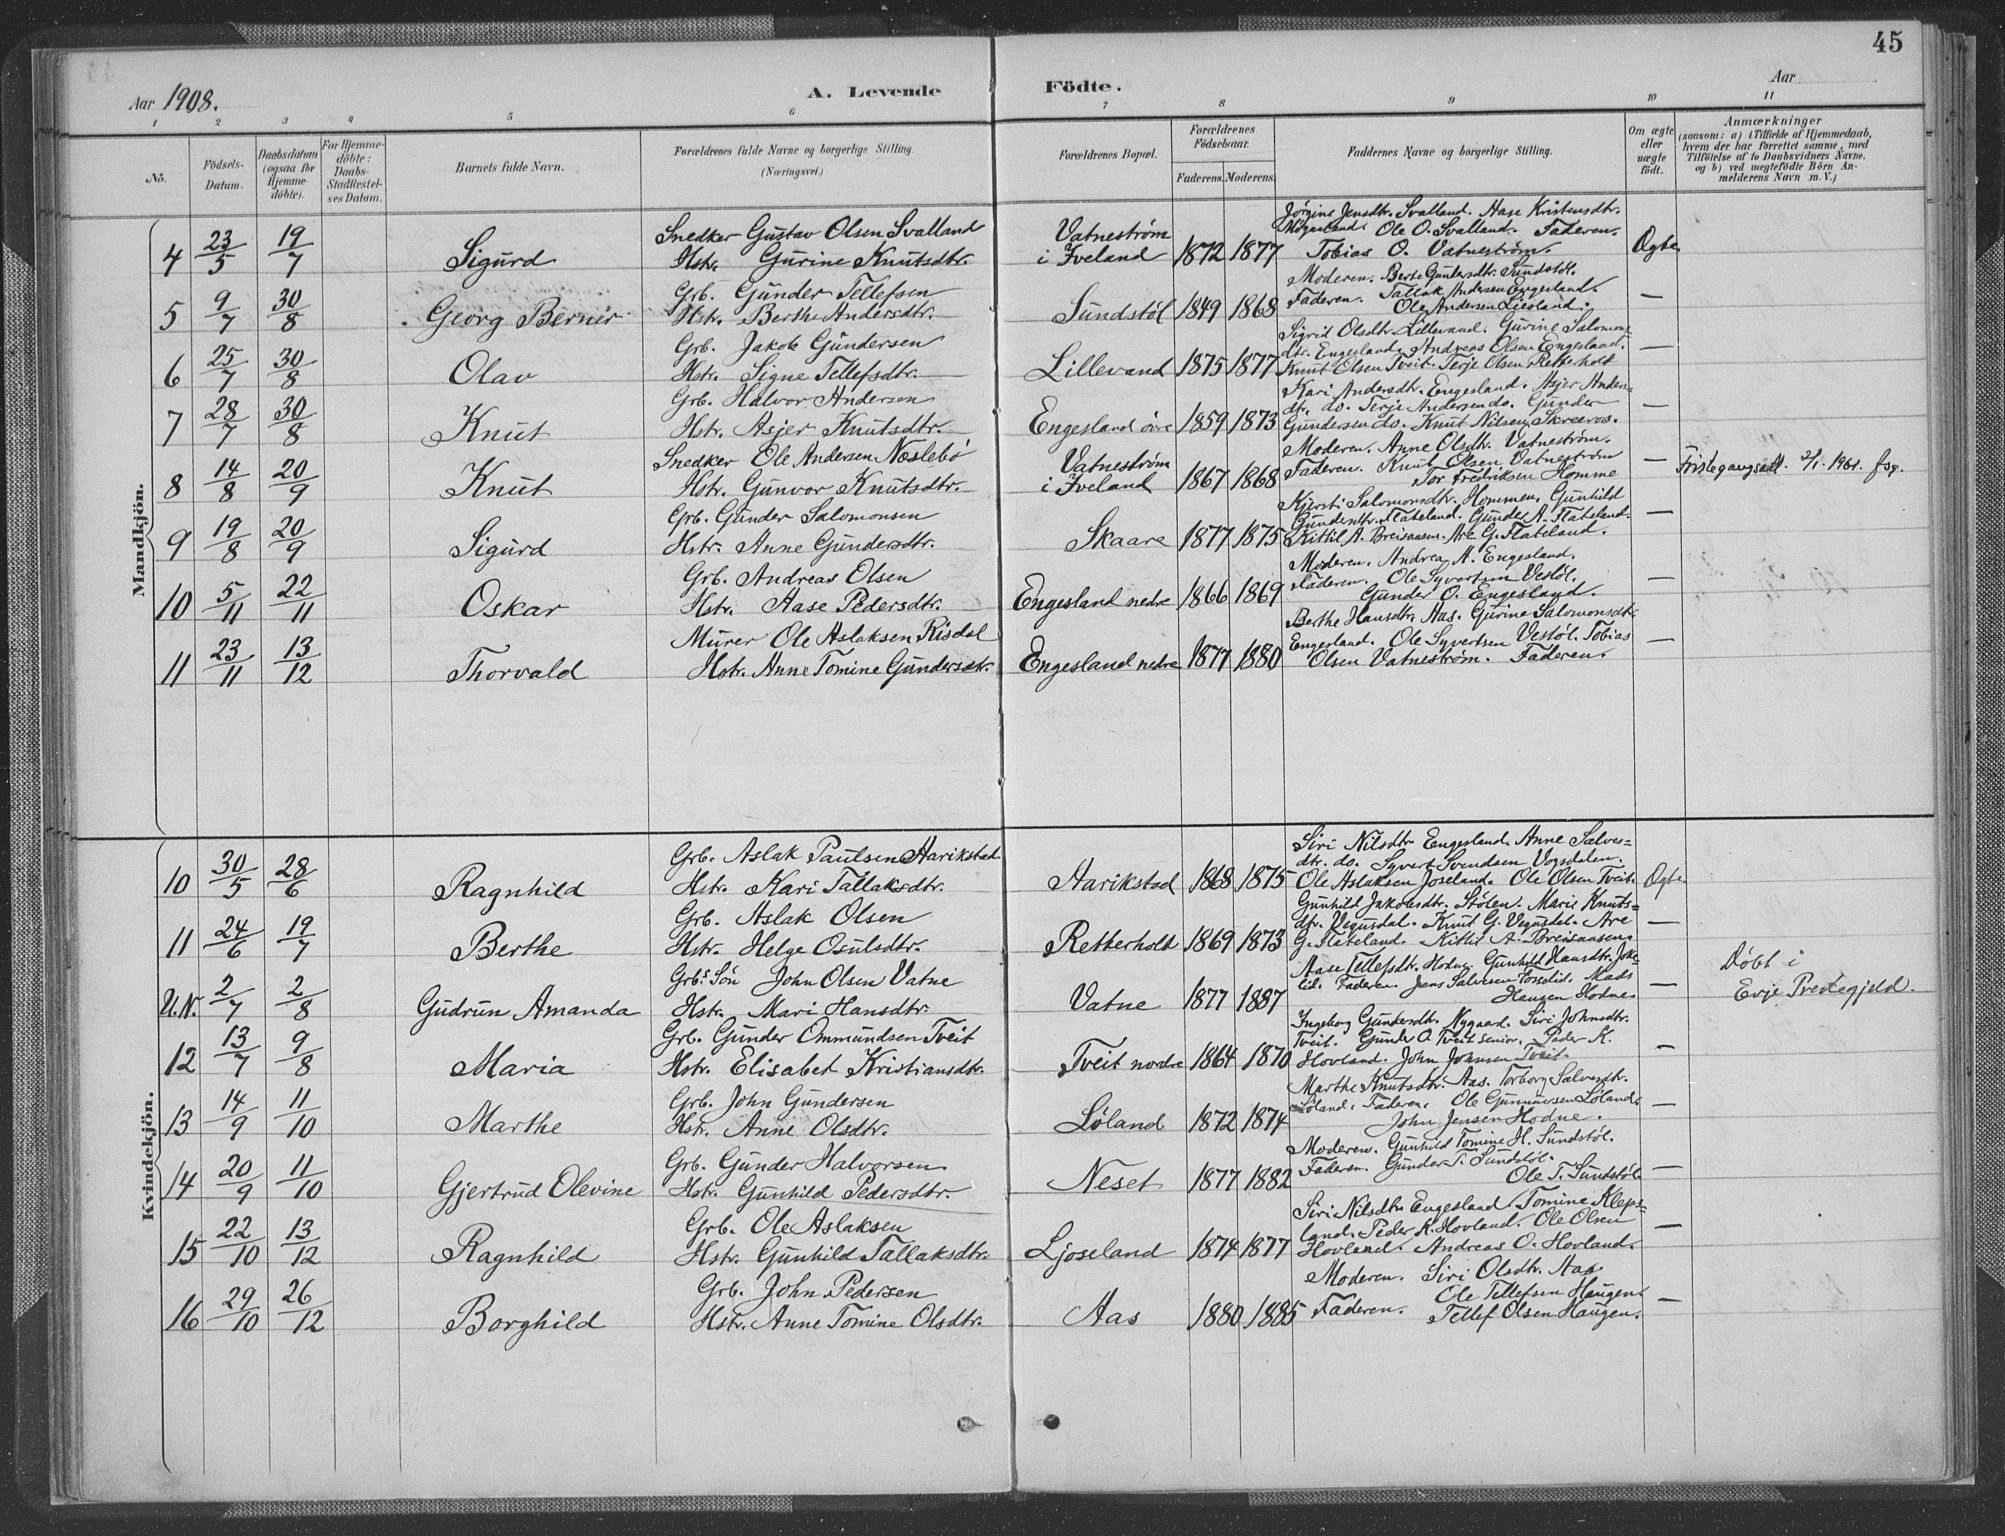 45
Aar 1908.
A. Levende Födte.
Aar
1 2 3 4 5 6 7 8 9 10 11
No.
Födsels-Datum.
Daabsdatum (ogsaa for Hjemmedöbte).
For Hjemmedöbte: Daabs-Stadfæstelses Datum.
Barnets fulde Navn.
Forældrenes fulde Navne og borgerlige Stilling. (Næringsvei.)
Forældrenes Bopæl.
Forældrenes Födselsaar.
Faderens. Moderens.
Faddernes Navne og borgerlige Stilling.
Om ægte eller uægte födt.
Anmærkninger
(saasom: a) i Tilfælde af Hjemmedaab, hvem der har forrettet samme, med Tilföielse af to Daabsvidners Navne. og b) ved uægtefödte Börn Anmelderens Navn m. V.)
Mandkjön.
4 23/5 19/7 Sigurd
Snedker Gustav Olsen Svalland
Hstr. Gurine Knutsdtr.
Vatneström i Iveland 1872 1877
Jörgine Jensdtr. Svalland. Aase Kristensdtr.
Ole O. Svalland. Faderen.
Tobias O. Vatneström.
Ægte
5 9/7 30/8 Georg Bernir
Grb. Gunder Tellefsen
Hstr. Berthe Andersdtr.
Sundstöl 1849 1868
Moderen. Berte Gundersdtr. Sundstöl.
Faderen. Tallak Andersen Engesland.
Ole Andersen Liesland.
—
6 25/7 30/8 Olav
Grb. Jakob Gundersen
Hstr. Signe Tellefsdtr.
Lillevand 1875 1877
Sigrid Olsdtr. Lillevand. Gurine Salomons-
dtr. Engesland. Andreas Olsen Engesland.
Knut Olsen Tveit. Terje Olsen Retterholt
—
7 28/7 30/8 Knut
Grb. Halvor Andersen
Hstr. Asjer Knutsdtr.
Engesland övre 1859 1873
Kari Andersdtr. Engesland. Asjer Anders-
dtr. do. Terje Andersen do. Gunder
Gundersen do. Knut Nilsen Skreros.
—
8 14/8 20/9 Knut
Snedker Ole Andersen Neslebö
Hstr. Gunvor Knutsdtr.
Vatneström i Iveland 1867 1868
Moderen. Anne Olsdtr. Vatneström.
Faderen. Knut Olsen Vatneström
Tor Fredriksen Homme
—
2/1. 1961.
9 19/8 20/9 Sigurd
Grb. Gunder Salomonsen
Hstr. Anne Gundersdtr.
Skaare 1877 1875
Kjersti Salomonsdtr. Hommen. Gunhild
Gundersdtr. Flateland. Gunder A. Flateland.
Kittil A. Breisaasen. Are G. Flateland.
—
10 5/11 22/11 Oskar
Grb. Andreas Olsen
Hstr. Aase Pedersdtr.
Engesland nedre 1866 1869
Moderen. Andrea A. Engesland.
Faderen. Ole Syvertsen Vestöl.
Gunder O. Engesland.
—
11 23/11 13/12 Thorvald
Murer Ole Aslaksen Risdal
Hstr. Anne Tomine Gundersdtr.
Engesland nedre 1877 1880
Berthe Hansdtr. Aas. Gurine Salomonsdtr.
Engesland. Ole Syvertsen Vestöl. Tobias
Olsen Vatneström. Faderen.
—
Kvindekjön.
10 30/5 28/6 Ragnhild
Grb. Aslak Paulsen Aarikstad
Hstr. Kari Tallaksdtr.
Aarikstad 1868 1875
Siri Nilsdtr Engesland. Anne Salves-
dtr. do. Syvert Svendsen Vogsdalen.
Ole Aslaksen Joseland. Ole Olsen Tveit.
Ægte
11 24/6 19/7 Berthe
Grb. Aslak Olsen
Hstr. Helge Osulsdtr.
Retterholt 1869 1873
Gunhild Jakobsdtr. Stölen. Marie Knuts-
dtr. Vegusdal. Knut G. Vegusdal. Are
G. Flateland. Kittil A. Breisaasen.
—
U.N. 2/7 2/8 Gudrun Amanda
Grb.s Sön John Olsen Vatne
Hstr. Mari Hansdtr.
Vatne 1877 1887
Aase Tellefsdtr. Hodne. Gunhild Hansdtr.
Faderen. Jens Salvesen Mads
Hansen Hodne.
—
Døbt i
Evje Prestegjeld.
12 13/7 9/8 Maria
Grb. Gunder Ommundsen Tveit
Hstr. Elisabet Kristiansdtr.
Tveit nordre 1864 1870
Ingeborg Gundersdtr. Nygaard. Siri Johnsdtr.
Tveit. Gunder O. Tveit senior. Peder K.
Hovland. John Johnsen Tveit.
—
13 14/9 11/10 Marthe
Grb. John Gundersen
Hstr. Anne Olsdtr.
Løland 1872 1874
Marthe Knutsdtr. Aas. Torborg Salvesdtr.
Løland. Faderen. Ole Gunnarsen Løland.
John Jensen Hodne.
—
14 20/9 11/10 Gjertrud Olevine
Grb. Gunder Halvorsen
Hstr. Gunhild Pedersdtr.
Neset 1877 1882
Moderen. Gunhild Tomine H. Sundstöl.
Faderen. Gunder T. Sundstöl.
Ole T. Sundstöl.
—
15 22/10 13/12 Ragnhild
Grb. Ole Aslaksen
Hstr. Gunhild Tallaksdtr.
Ljoseland 1874 1877
Siri Nilsdtr Engesland. Tomine Kleps-
land. Peder K. Hovland. Ole Olsen
Hovland. Andreas O. Hovland.
—
16 29/10 26/12 Borghild
Grb. John Pedersen
Hstr. Anne Tomine Olsdtr.
Aas 1880 1885
Moderen. Siri Olsdtr. Aas.
Ole Tellefsen Haugen.
Faderen. Tellef Olsen Haugen.
—